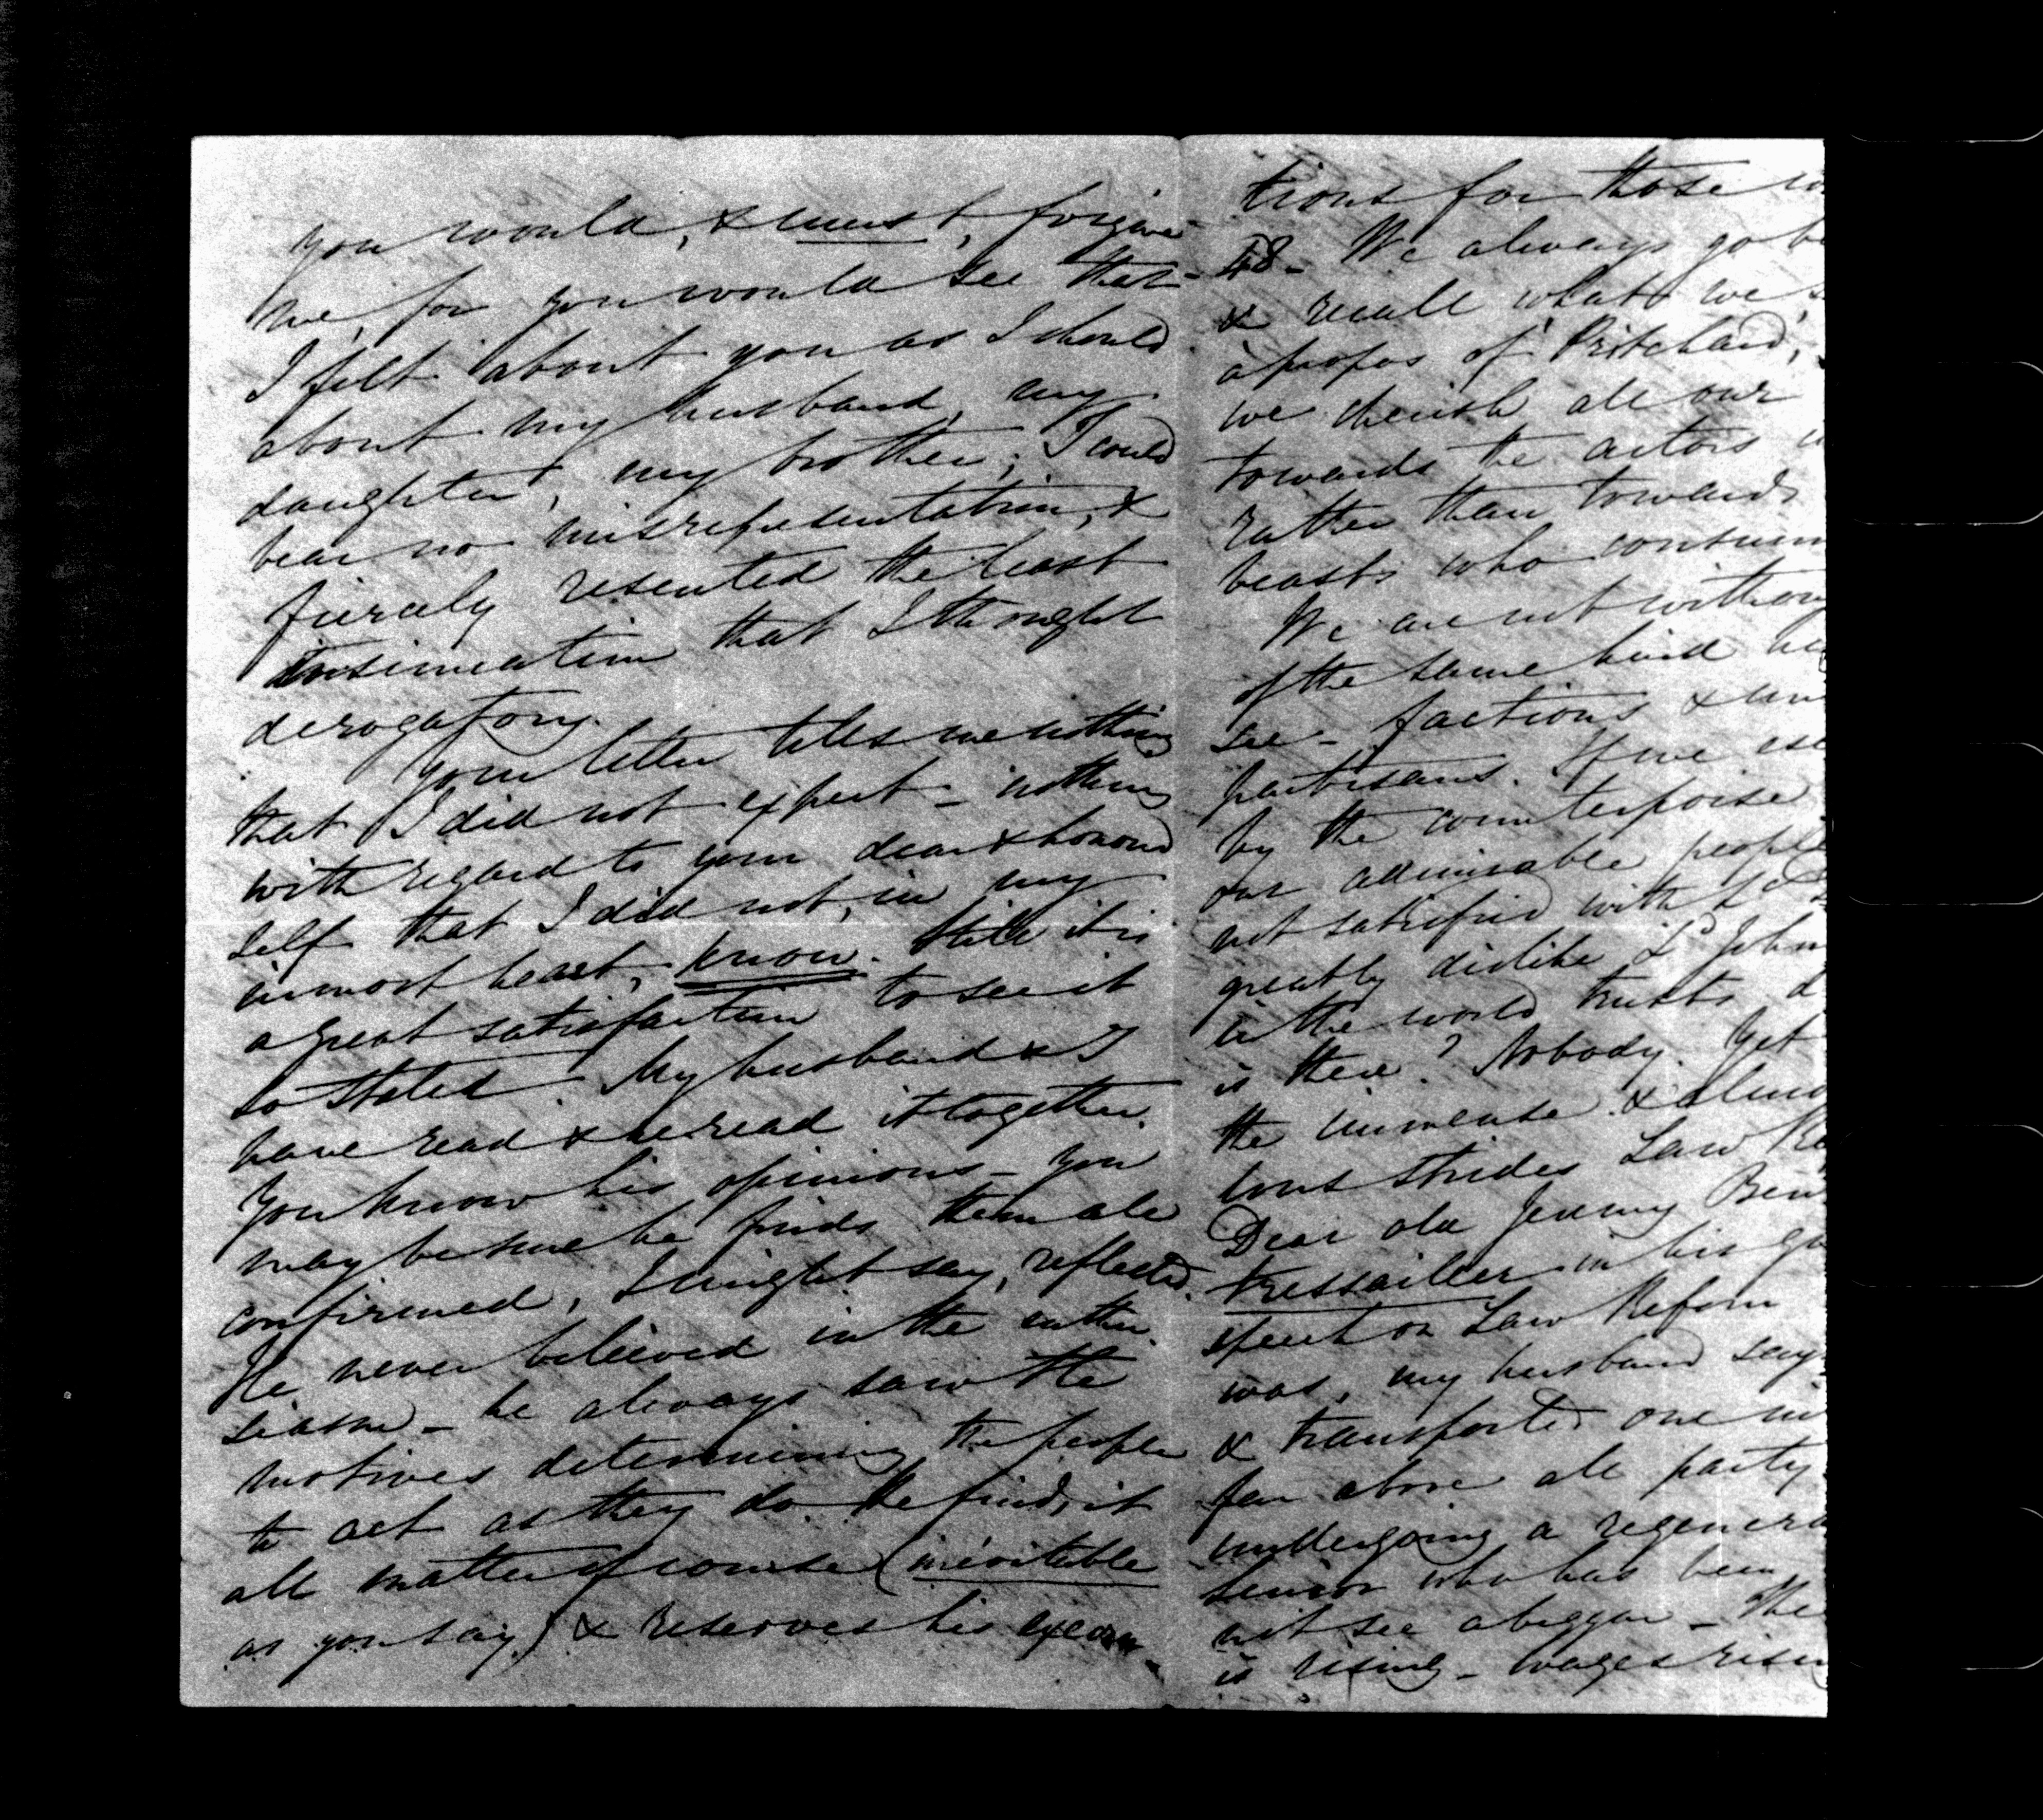 you would, & must, forgive
me, for you would see that
I felt about you as I should
about my husband, my
daughter, my brother; I could
bear no misrepresentation, &
fiercely resented the least
insinuation that I thought
derogatory.
Your letter tells me nothing
that I did not expect - nothing
with regard to your dear & honored
self that I did not, in my
inmost heart, know. Still it is
a great satisfaction to see it
so stated. My husband & I
have read & re-read it together.
You know his opinions - you
may be sure he finds them all
confirmed, I might say, reflected.
He never believed in the enthu-
siasm - he always saw the
motives determining the people
to act as they do. He finds it
all matter of course (inévitable
as you say) & reserves his execra-
tions for those
48 - We always go
& recall what we
àpropos of Pritchard,
we cherish all our
towards the actors
rather than towards
beasts who
We are not
of the same kind
see - factions &
partisans. If we
by the counterpoise
our admirable people
not satisfied with Ld
greatly dislike Ld John
in the world trusts
is there? Nobody. Yet
the immense &
tous strides Law
Dear old Jeremy
tressaillir in his
speech on Law Reform
was, my husband says
& transported one
far above all party
undergoing a
Senior who has been
not see a beggar - The
is rising - wages